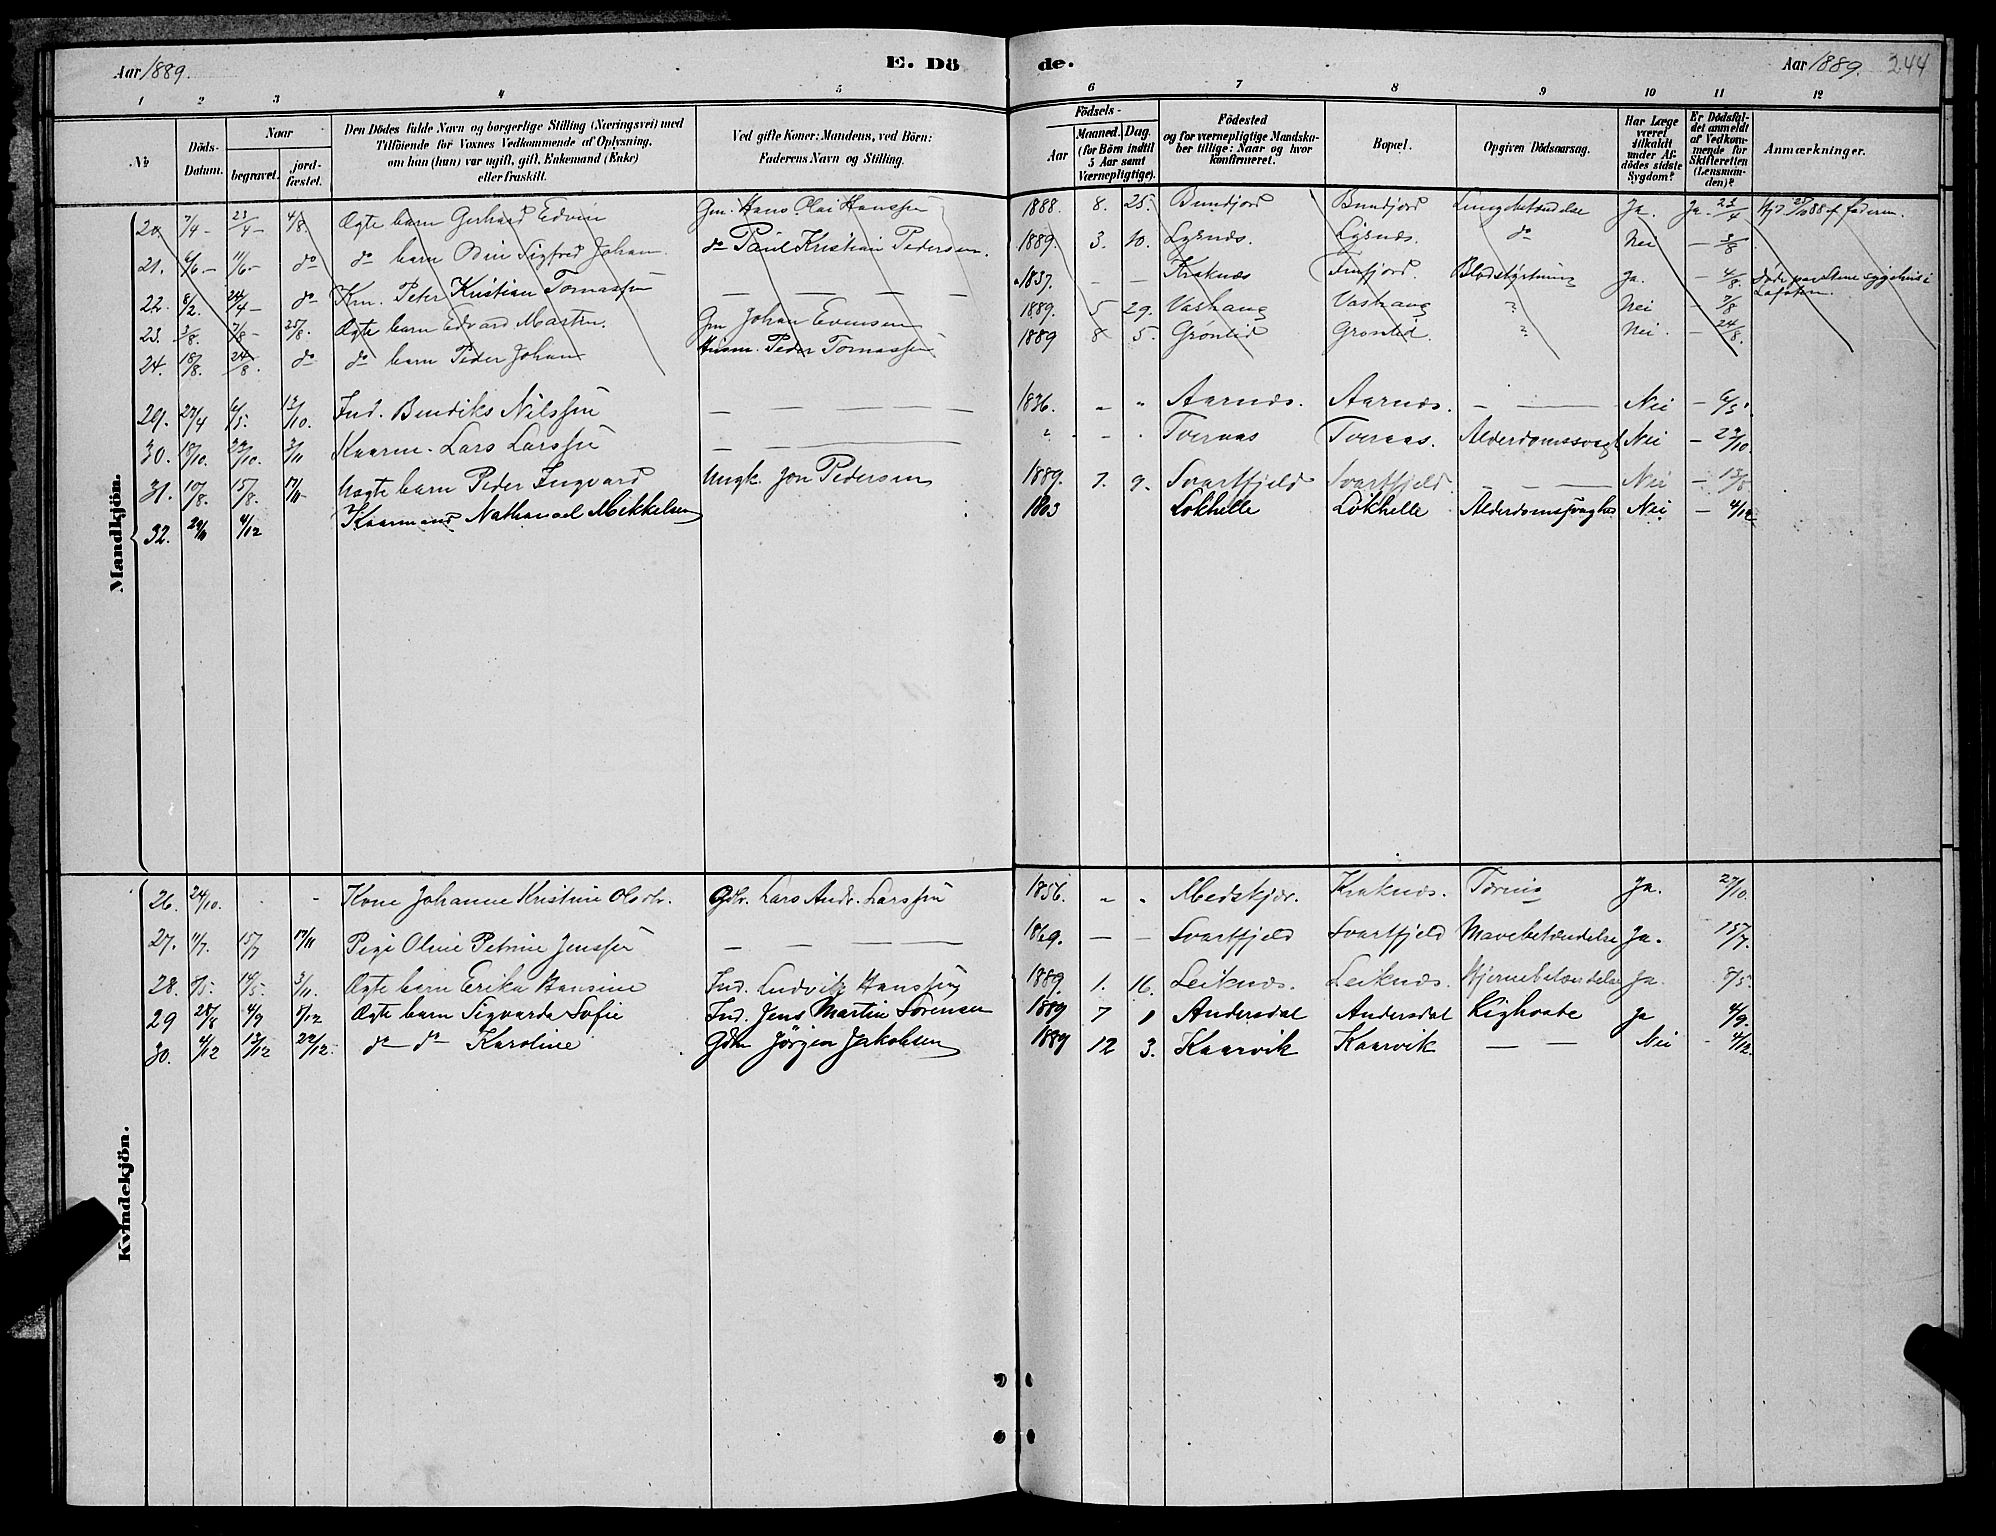 Aar 1889. E. Dö
de. Aar 1889. 244
1 2 3 4 5
6 7 8 9 10 11 12
No
Döds-Datum.
Naar
begravet.
jord-fæstet.
Den Dödes fulde Navn og borgerlige Stilling (Næringsvei) med
Tilföiende for Voxnes Vedkommende af Oplysning,
om han (hun) var ugift, gift, Enkemand (Enke)
eller fraskilt.
Ved gifte Koner: Mandens, ved Börn:
Faderens Navn og Stilling.
Födsels-
Aar
Maaned. Dag.
(for Börn indtil
5 Aar samt
Værnepligtige).
Födested
og for værnepligtige Mandska-
ber tillige: Naar og hvor
konfirmeret.
Bopæl.
Opgiven Dödsaarsag.
Har Læge
været
tilkaldt
under Af-
dödes sidste
Sygdom?
Er Dödsfal-
det anmeldt
af Vedkom-
mende for
Skifteretten
(Lensman-
den)?
Anmærkninger.
Mandkjön.
20. 7/4 - 23/4 - 4/8. Ægte barn Gerhard Edvin Gm. Hans Olai Hanssen 1888. 8. 25. Bundfjord Bundfjord Lungebetændelse Ja. Ja. 23/4 Hjd 27/10 88 af faderen.
21. 6/6 - 11/6 - do do barn Odin Sigfred Johan do Paul Kristian Pedersen. 1889. 3. 10. Lysnæs. Lysnæs. do Nei - 3/8
22. 8/2. 24/4 - do Km. Peter Kristian Tomassen — — — 1837. — — Kraknæs Finfjord. Blodstyrtning Ja. - 4/8. Døde paa Stene sygehus i Lofoten.
23. 3/8. 7/8 - 25/8. Ægte barn Edvard Martin. Gm Johan Evensen 1889. 5 29. Vashaug Vashaug ? Nei - 7/8
24. 18/8. 24/8. do do barn Peder Johan Husm. Peder Tomassen 1889 8 5. Grønlid Grønlid. ? Nei. - 24/8.
29. 27/4 6/5. 13/10. Ind. Bendiks Nilssen — — — 1836. " " Aarnæs. Aarnæs. - — Nei - 6/5.
30. 18/10. 22/10. 3/11 Kaarm. Lars Larssen — — " - - Tvernæs Tvernæs. Alderdomssvagh Nei - 22/10.
31. 10/8. 15/8. 17/11 Uægte barn Peder Ingvard Ungk. Jon Pedersen 1889. 7. 9. Svartfjeld Svartfjeld. - — Nei - 15/8
32. 24/11 4/12 Kaarmand Nathanael Mikkelsen 1803 Løkhelle Løkhelle Alderdomssvaghed Nei - 4/12
Kvindekjön.
26. 24/10. - - Kone Johanne Kristine Olsdtr. Gdbr. Lars Andr. Larssen 1856. " " Medskjær. Kraknæs. Tæring Ja. 27/10.
27. 11/7. 15/7 17/11 Pige Oline Petrine Jenssen — — — 1869. — — Svartfjeld Svartfjeld Mavebetændelse Ja. - 15/7.
28. 8/5. 19/5. 3/11. Ægte barn Erika Hansine Ind. Ludvik Hanssen 1889. 1. 16. Leiknæs. Leiknæs. Hjernebetændelse Ja. 8/5.
29 28/8 4/9 8/12 Ægte barn Sigvarda Sofie Ind. Jens Martin Sørensen 1889 7 1 Andersdal Andersdal Kighoste Ja 4/9.
30. 4/12 12/12 22/12. do do Karoline Gdbr Jørgen Jakobsen 1889 12 3. Kaarvik Kaarvik — — Nei - 4/12.